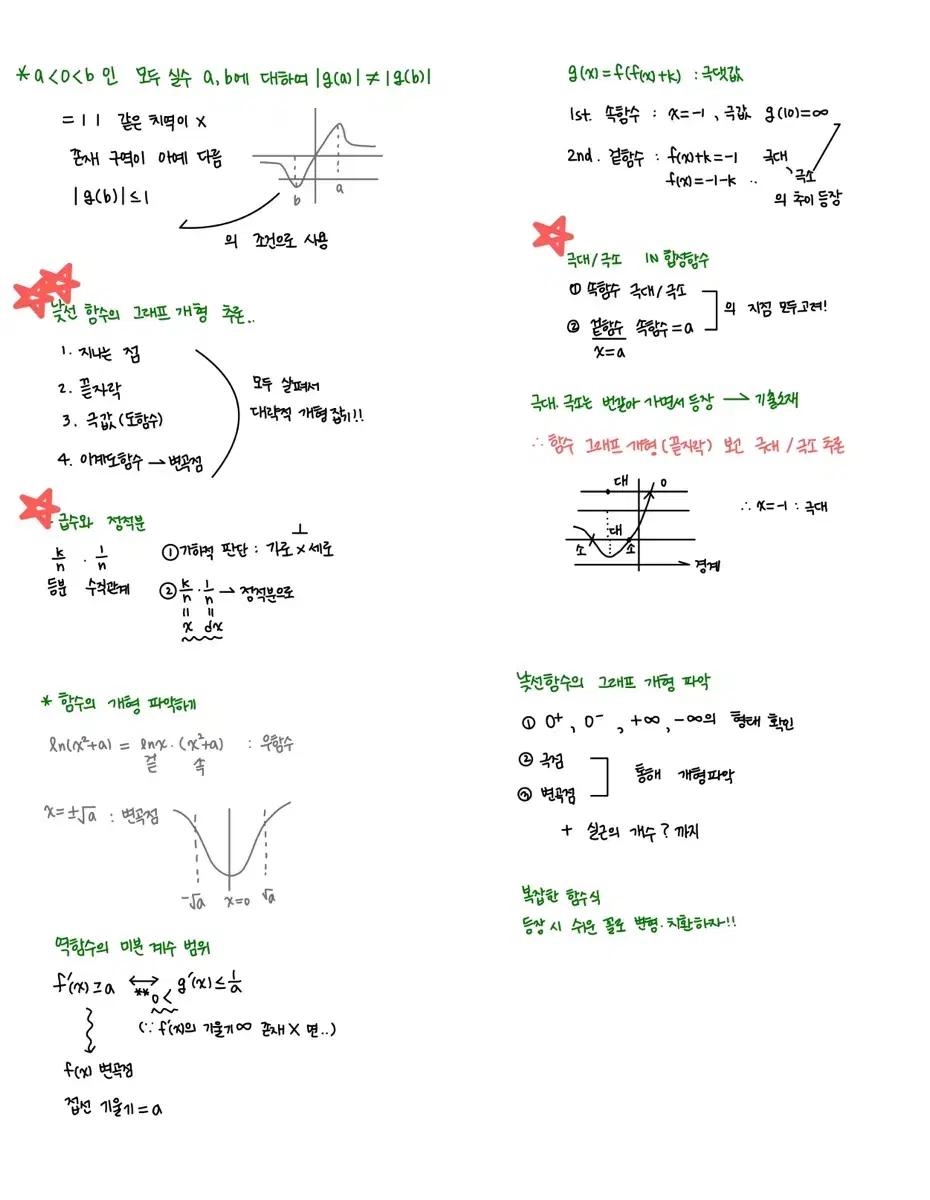 * a<0<b 인 모두 실수 a, b에 대하여 |g(a)| ≠ |g(b)|
= | | 같은 치역이 x
존재 구역이 아예 다름
|g(b)| ≤ 1
b
a
의 조건으로 사용
낯선 함수의 그래프 개형 추론..
1. 지나는 점
2. 끝자락
3. 극값 (도함수)
4. 이계도함수 → 변곡점
모두 살펴서
대략적 개형 잡기!!
급수와 정적분
k/n · 1/n
등분 수직관계
① 기하적 판단 : 가로 x 세로
⊥
② k/n · 1/n → 정적분으로
= =
x dx
* 함수의 개형 파악하기
ln(x²+a) = lnx · (x²+a) : 우함수
겉 속
x=±√a : 변곡점
-√a x=0 √a
역함수의 미분 계수 범위
f'(x) ≥ a ↔ ** 0< g'(x) ≤ 1/a
(∵ f'(x)의 기울기 ∞ 존재 X 면..)
f(x) 변곡점
접선 기울기 = a
g(x) = f(f(x)+k) : 극댓값
1st. 속함수 : x=-1, 극값 g(10)=∞
2nd. 겉함수 : f(x)+k=-1 극대
f(x)=-1-k .. 극소
의 추이 등장
극대/극소 IN 합성함수
① 쏙함수 극대/극소
② 겉함수 속함수=a
x=a
의 지점 모두고려!
극대.극소는 번갈아 가면서 등장 → 기출소재
∴ 함수 그래프 개형 (끝자락) 보고 극대/극소 추론
대 0
대
소 소
경계
∴ x=-1 : 극대
낯선함수의 그래프 개형 파악
① 0⁺, 0⁻, +∞, -∞의 형태 확인
② 극점
③ 변곡점
통해 개형파악
+ 실근의 개수? 까지
복잡한 함수식
등장 시 쉬운 꼴로 변형.치환하자!!